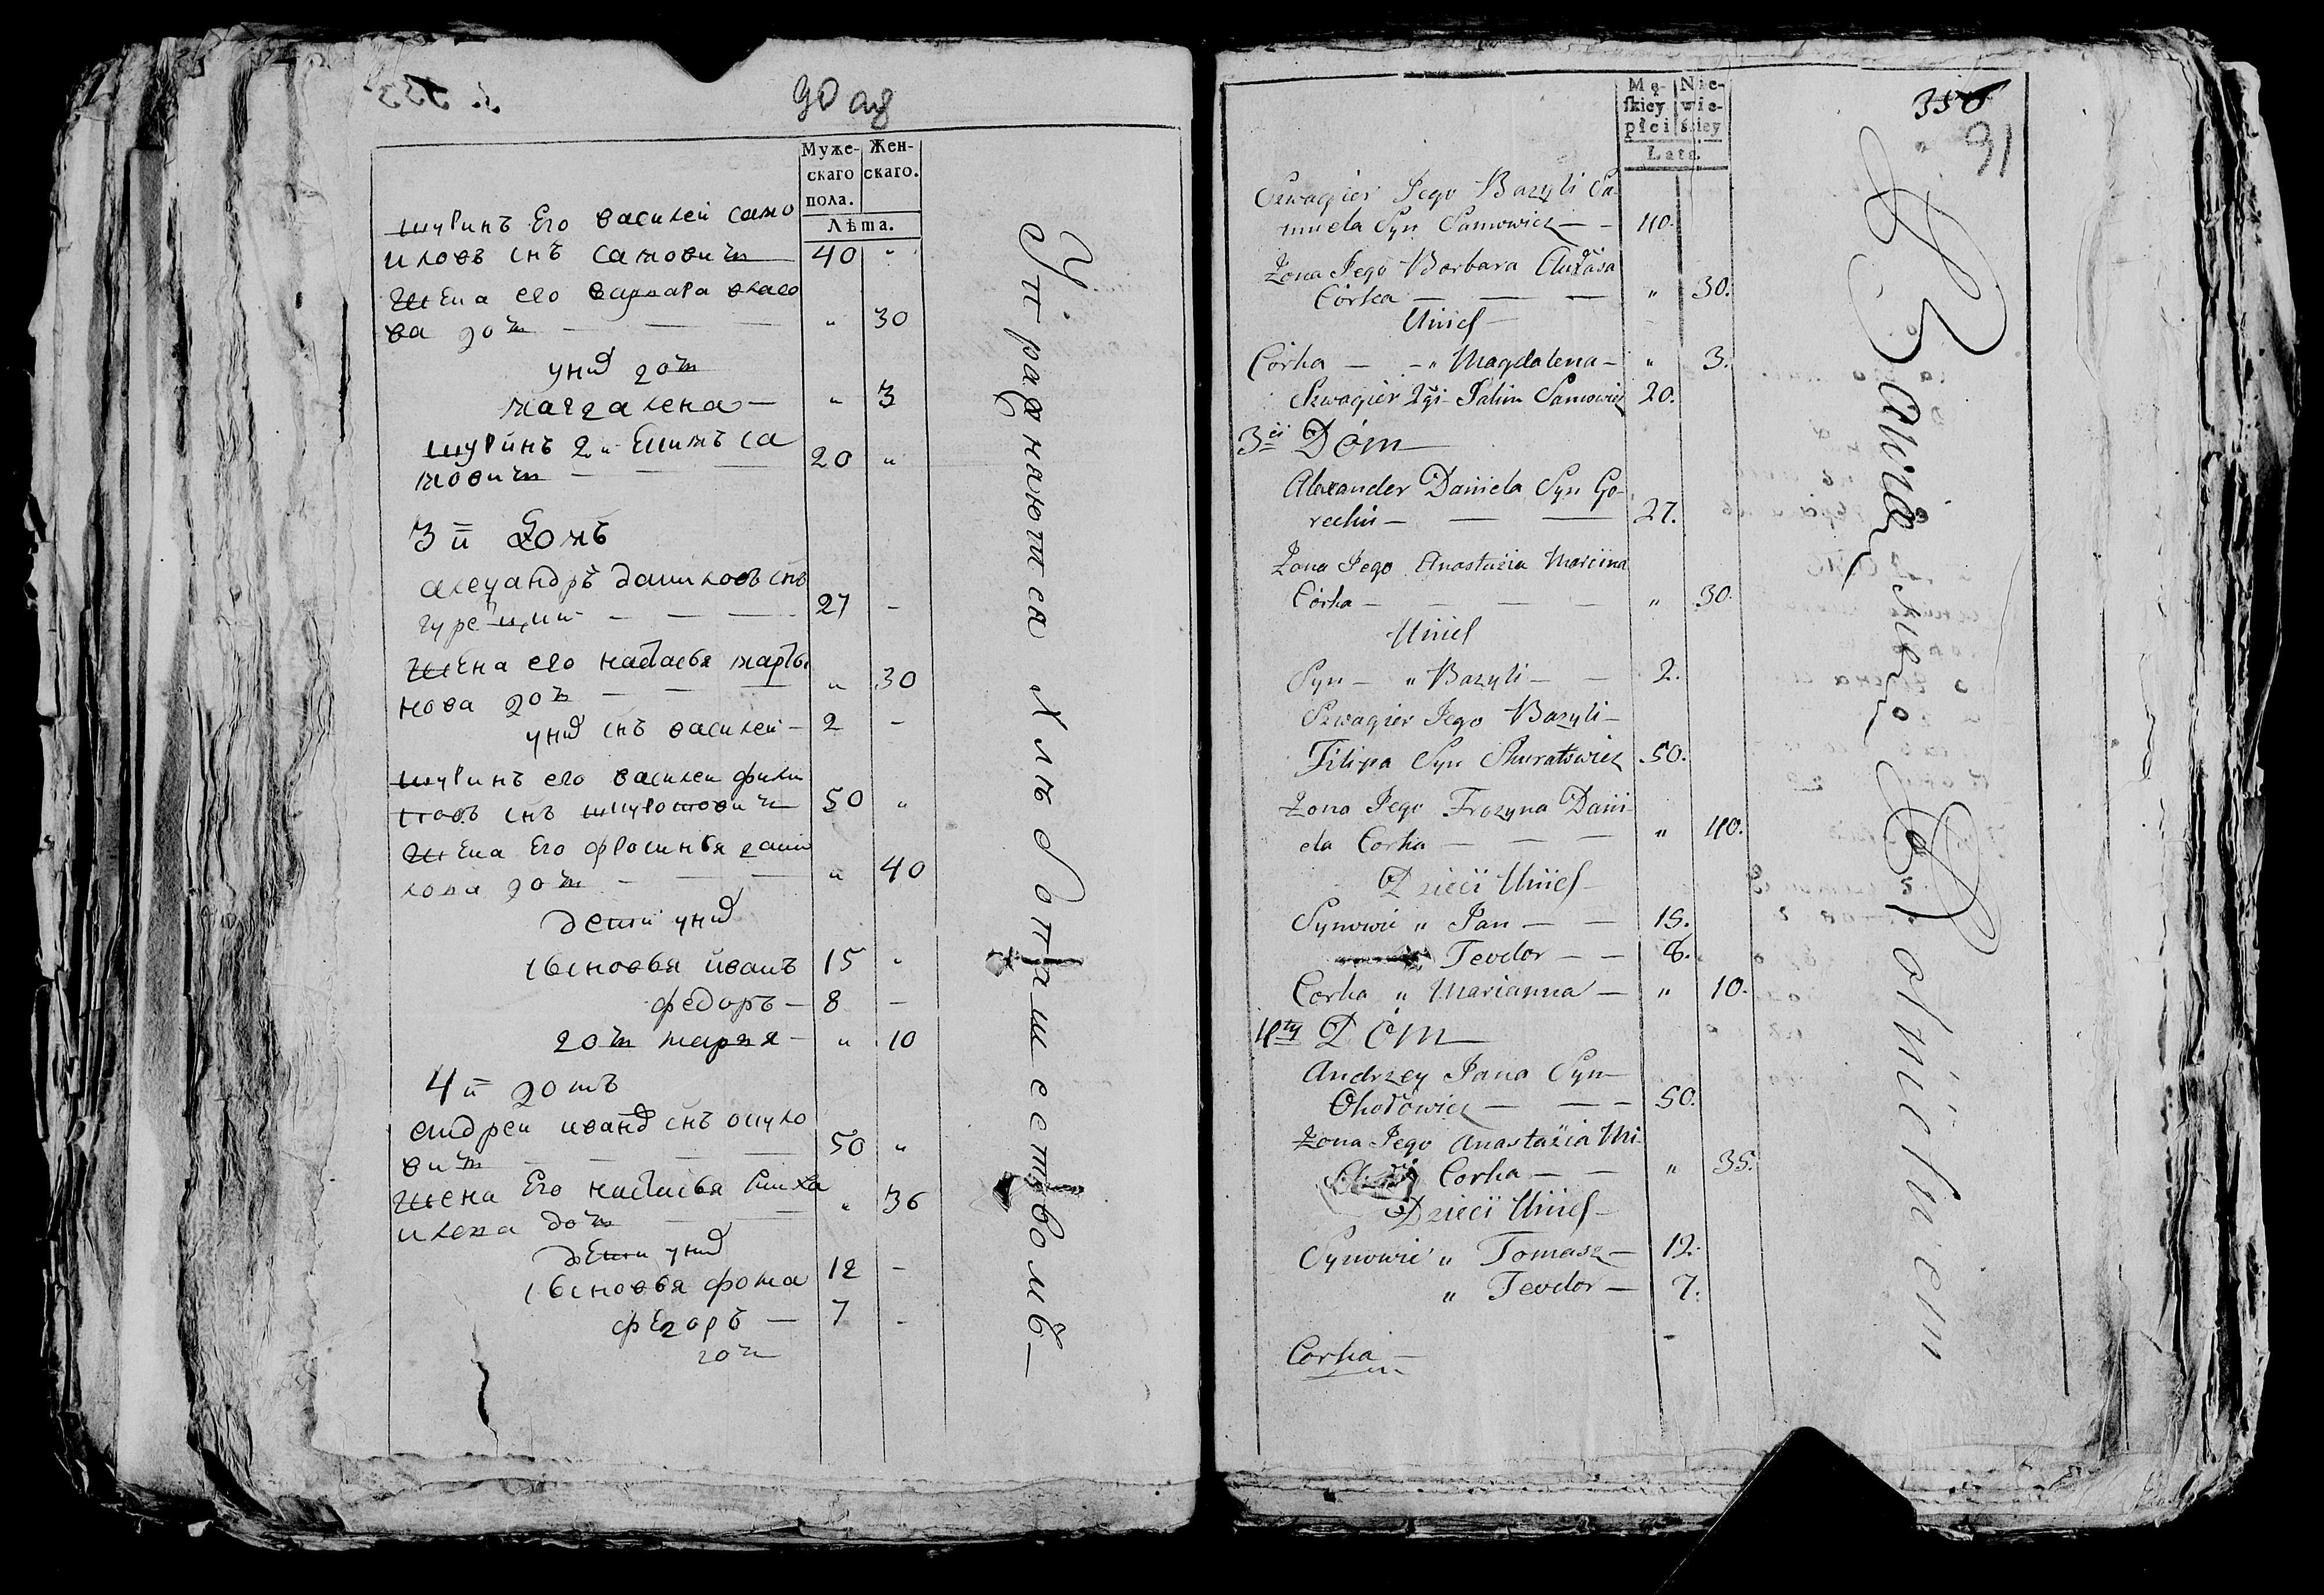 90 об
Муже-
скаго
пола.
Жен-
скаго.
Лѣта.
шуринъ Его василеи само
иловъ снъ самовичъ 40 "
Жена его варвара власо
ва доч — " 30
унихъ доч
магдалена — " 3
шуринъ 2й Ешимъ са
мовичъ — 20 "
3й Домъ
александръ даниловъ снъ
27 -
Жена его настасья марты
нова доч — " 30
унихъ снъ василеи — 2 -
шуринъ его василеи фили
повъ снъ 50 "
Жена Его фросинья дани
лова доч — " 40
дети унихъ
сыновья иванъ 15 "
федоръ — 8 -
доч марья - " 10
4й домъ
андреи ивановъ снъ
вичъ — 50 "
Жена Его настасья миха
илова доч — " 36
дети унихъ
сыновья фома 12 -
федоръ — 7 -
доч
Упражняются хлѣбопашествомъ
350
91
Mę-
ſkiey
płci
Nie-
wie-
ściey
Lata.
Szwagier Jego Bazyli Sa-
muela Syn Samowicz — 40.
Żona Jego Barbara
Córka — " 30.
Unich
Córka — " Magdalena — " 3.
Szwagier 2gi Samowicz 20.
3ci Dom
Alexander Daniela Syn Go-
recki — 27.
Żona Jego Anastazia Marcina
Córka — " 30.
Unich
Syn — " Bazyli — 2.
Szwagier Jego Bazyli —
Filipa Syn Skuratowicz 50.
Żona Jego Frozyna Dani
ela Corka — " 40.
Dzieci Unich
Synowie " Jan — 15.
Teodor — 8.
Corka " Marianna — " 10.
4ty Dom
Andrzey Jana Syn
50.
Żona Jego Anastazia Mi
Corka — " 35.
Dzieci Unich
Synowie " Tomasz — 12.
" Teodor — 7.
Corka —
Bawią się Rolnictwem